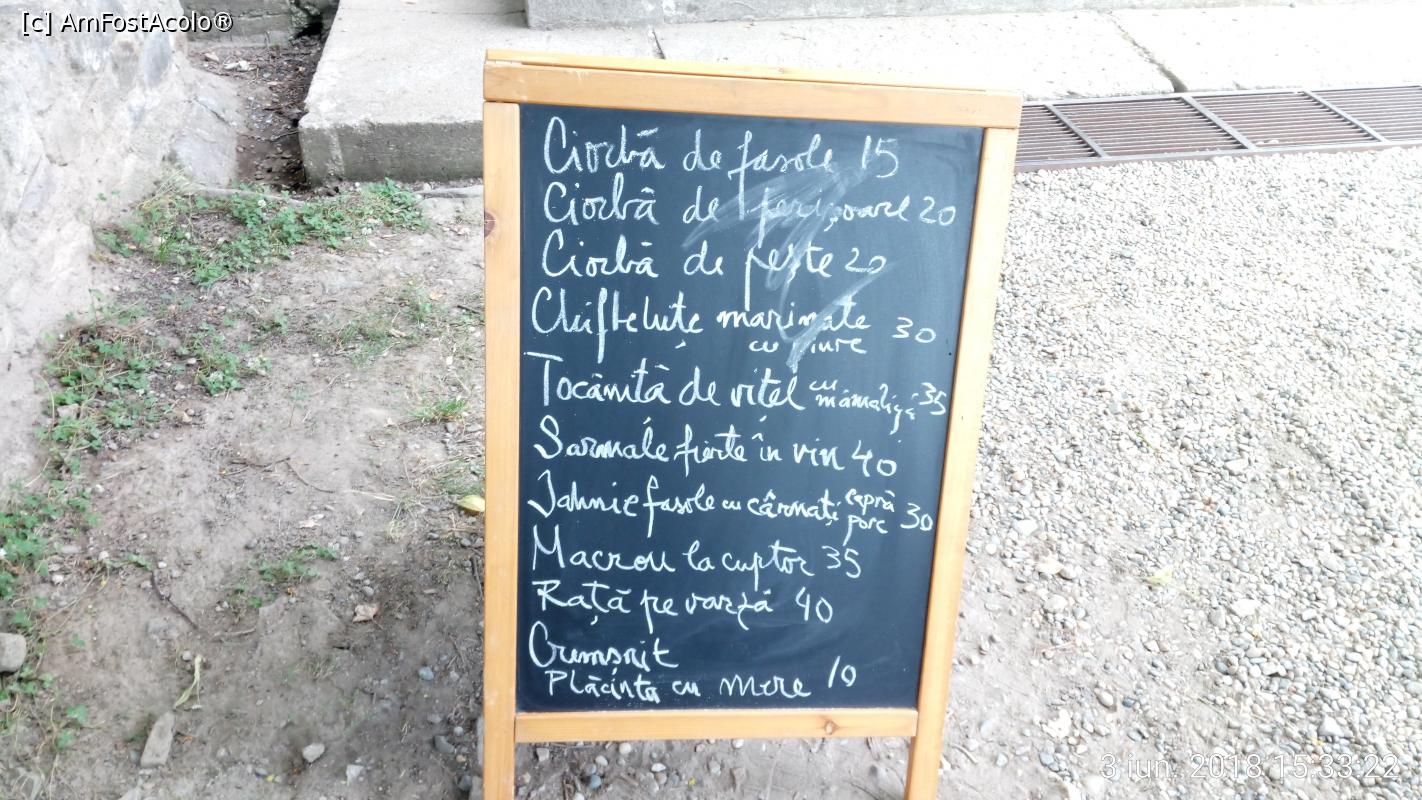 [c] AmFostAcolo®
Ciorbă de fasole 15
Ciorbă de perișoare 20
Ciorbă de pește 20
Chifteluțe marinate 30
cu piure
Tocăniță de vițel cu mămăligă 35
Sarmale fierte în vin 40
Iahnie fasole cu cârnați capră porc 30
Macrou la cuptor 35
Rață pe varză 40
Cremșnit
Plăcinta cu mere 10
3 iun. 2018 15:33:22